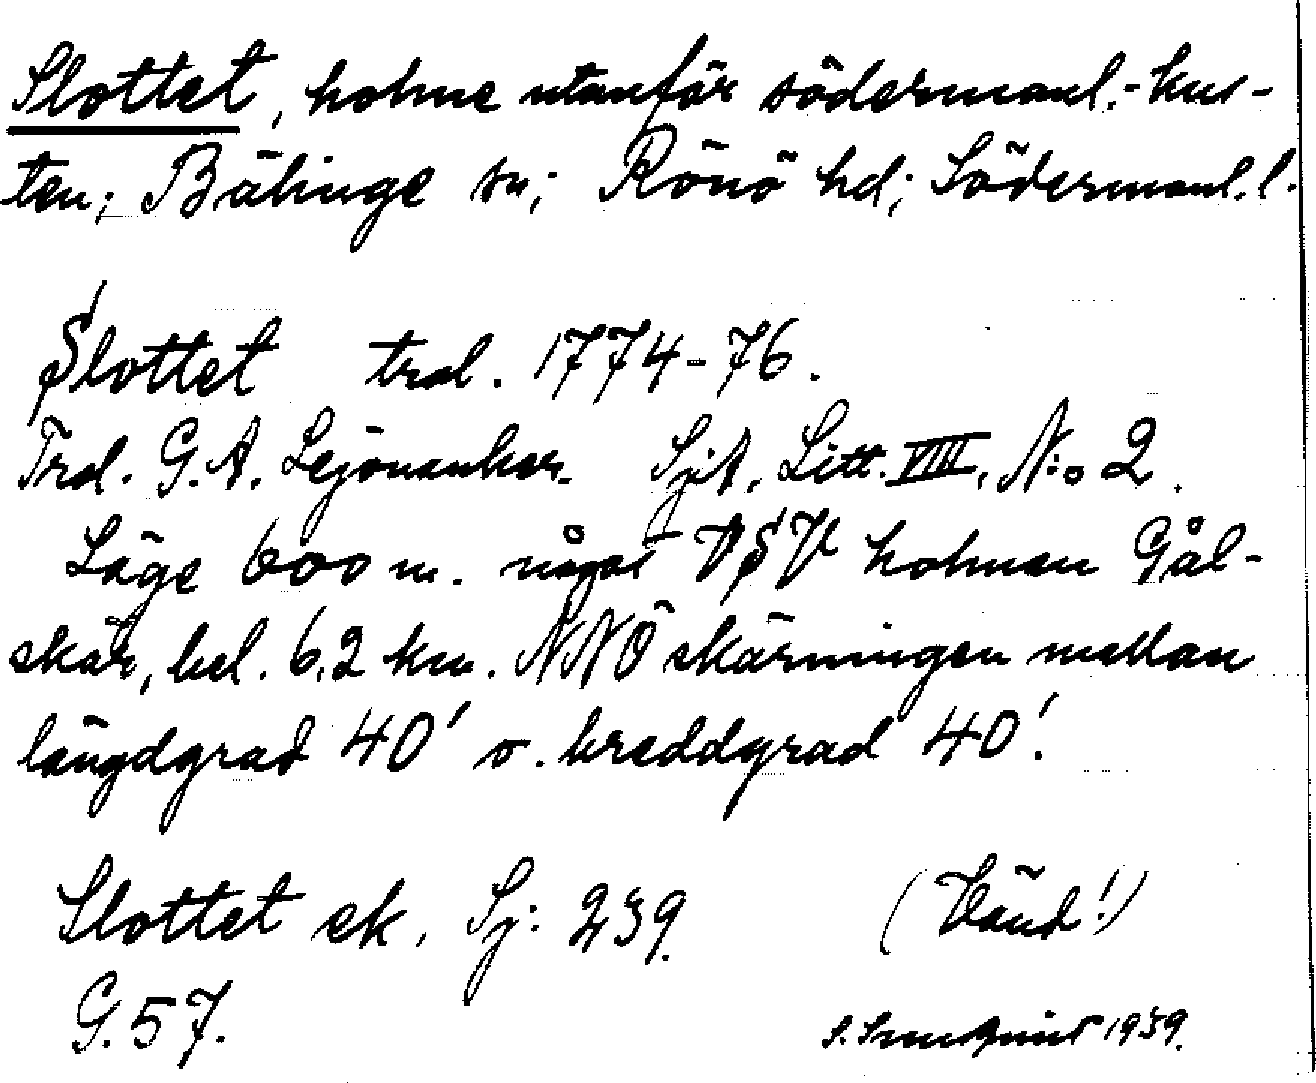 Slottet, holme utanför södermanl.-kus-
ten; Bälinge sn; Rönö hd; Södermanl. l.
Slottet trol. 1774-76.
Trol. G.A. Lejonanker. SjA, Litt. VIII, N:o 2.
Läge 600 m. något VSV holmen Gål-
skär, bel. 6,2 km. NNÖ skärningen mellan
längdgrad 40' o. breddgrad 40'.
Slottet ek. Sj: 239.
(Vänd!)
G. 57.
S. 1939.